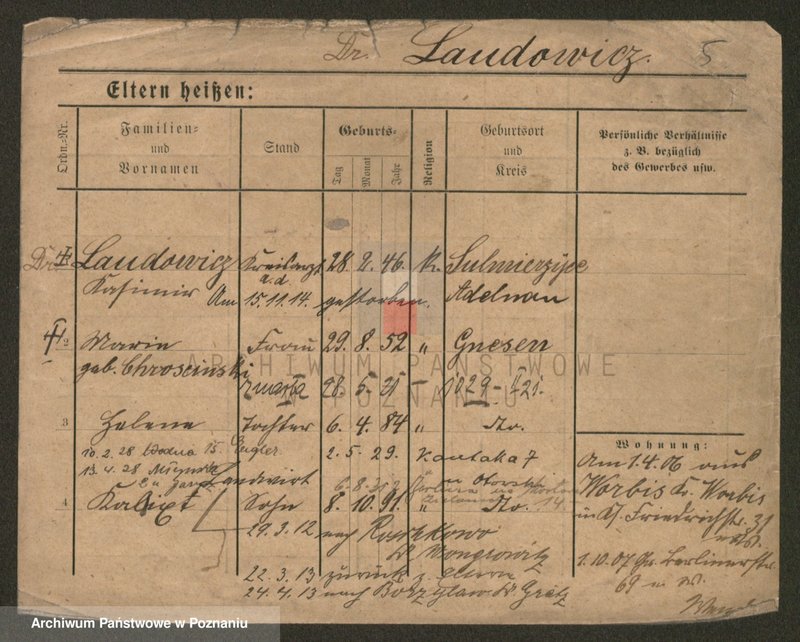 Dr. Laudowicz. 5
Eltern heißen:
Ordn.-Nr.
Familien- und Vornamen
Stand
Geburts-
Tag
Monat
Jahr
Religion
Geburtsort und Kreis
Persönliche Verhältnisse z. B. bezüglich des Gewerbes usw.
Dr. Laudowicz Kreisarzt 28. 2. 46. k. Sulmierzyce
a. d.
Kasimir Am 15.11.14. gestorben. Adelnau
2 Marie Frau 29. 8. 52 " Gnesen
geb. Chroscinski
ARCHIWUM PAŃSTWOWE
W POZNANIU
zmarła 28. 5. 21
3 Helene Tochter 6. 4. 84 " do.
10.2.28 Wodna 15.
2. 5. 29. Kantaka 7
13.4.28
Landwirt
4 Kalixt Sohn 8. 10. 91. " do.
29.3.12 nach Raschkowo
Kr. Wongrowitz
22.3.13 zurück z. Eltern
24.4.13 nach Kr. Grätz
Wohnung:
Am 1.4.06 aus
Worbis Kr. Worbis
in Friedrichstr. 31
1.10.07 Berlinerstr.
69
Archiwum Państwowe w Poznaniu